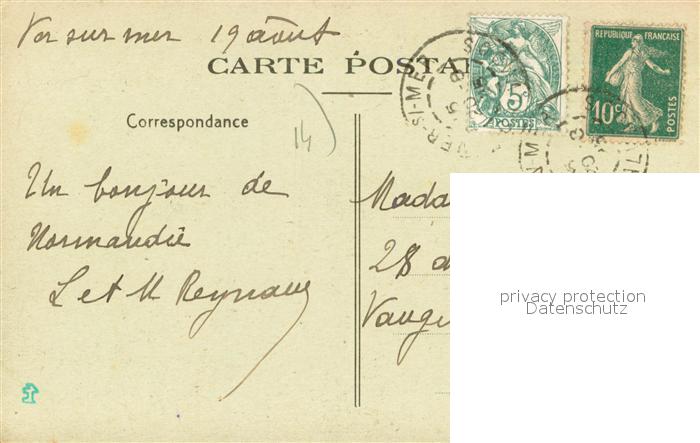 Ver sur mer 19 août
CARTE POSTA
Correspondance
14
Un bonjour de
Normandie
L et M Reynaud
Mada
28
Vaugi
5
POSTES
REPUBLIQUE FRANÇAISE
10c
POSTES
VER-S/-MER
privacy protection
Datenschutz